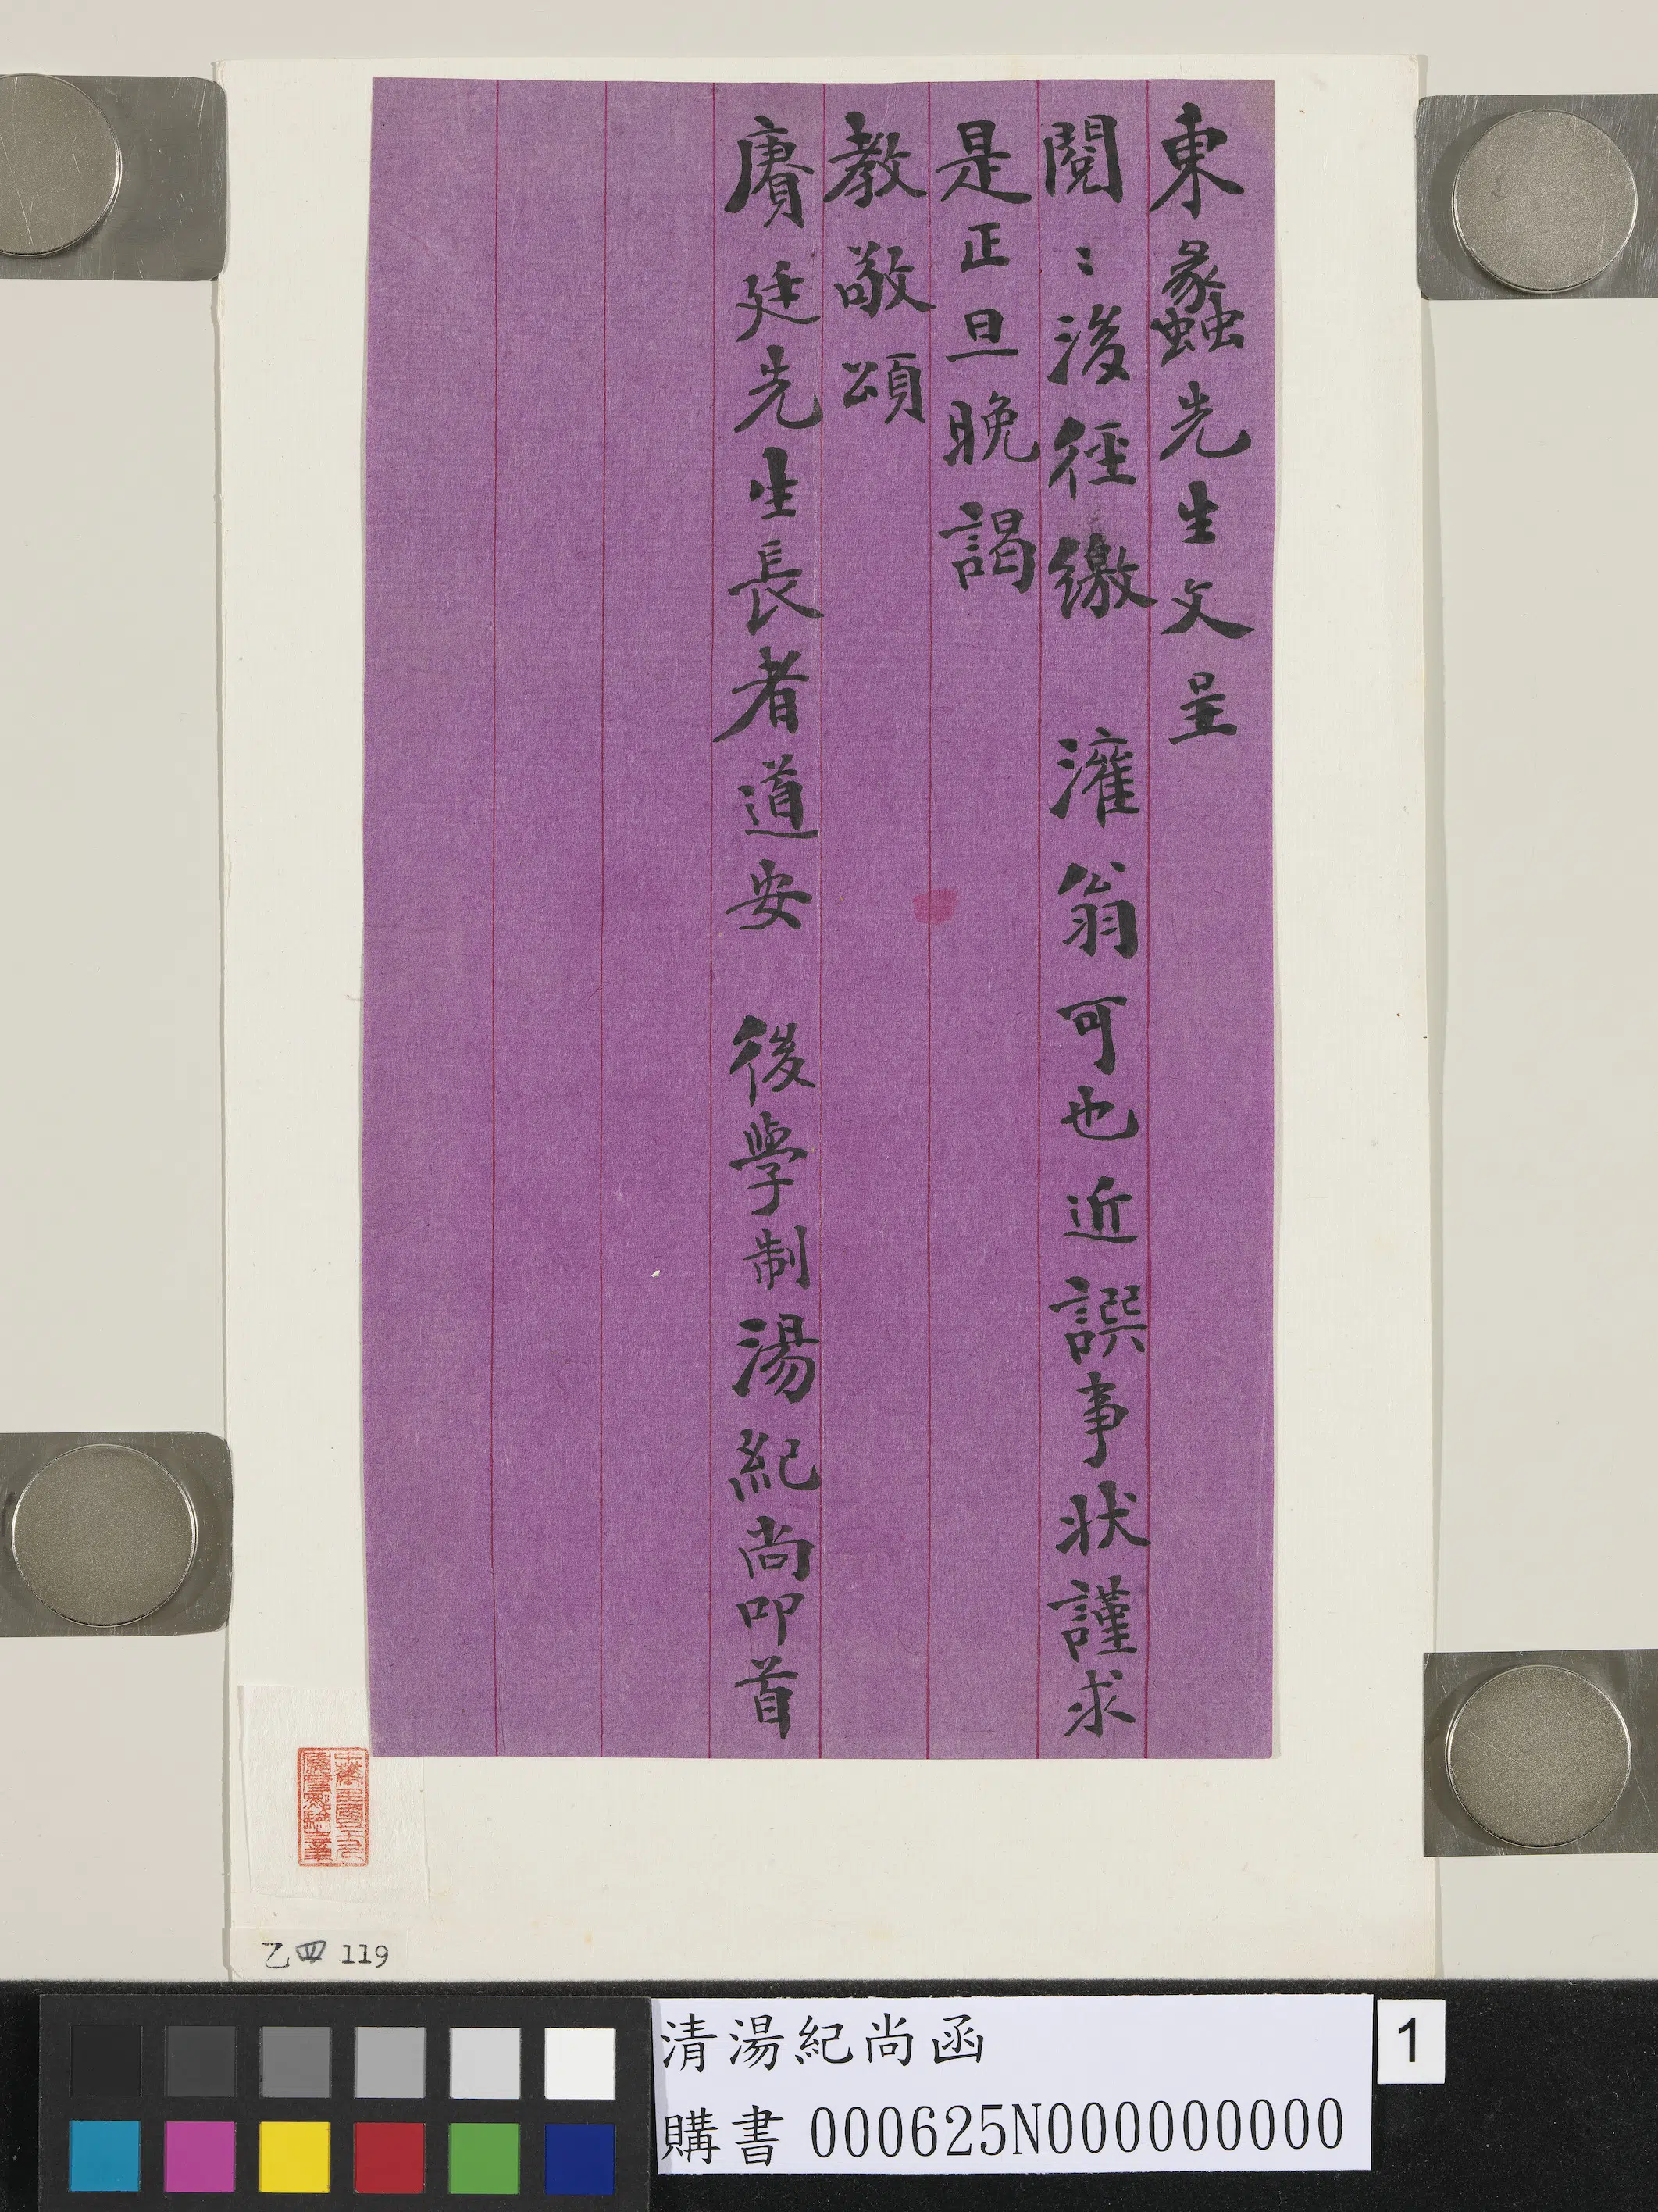 東蠡先生文呈
閱:浚徑繳 灌翁可也近譔事狀謹求
是正旦晚謁
教敬頌
賡廷先生長者道安 後學制湯紀尚叩首
乙四 119
清湯紀尚函
購書 000625N000000000
1